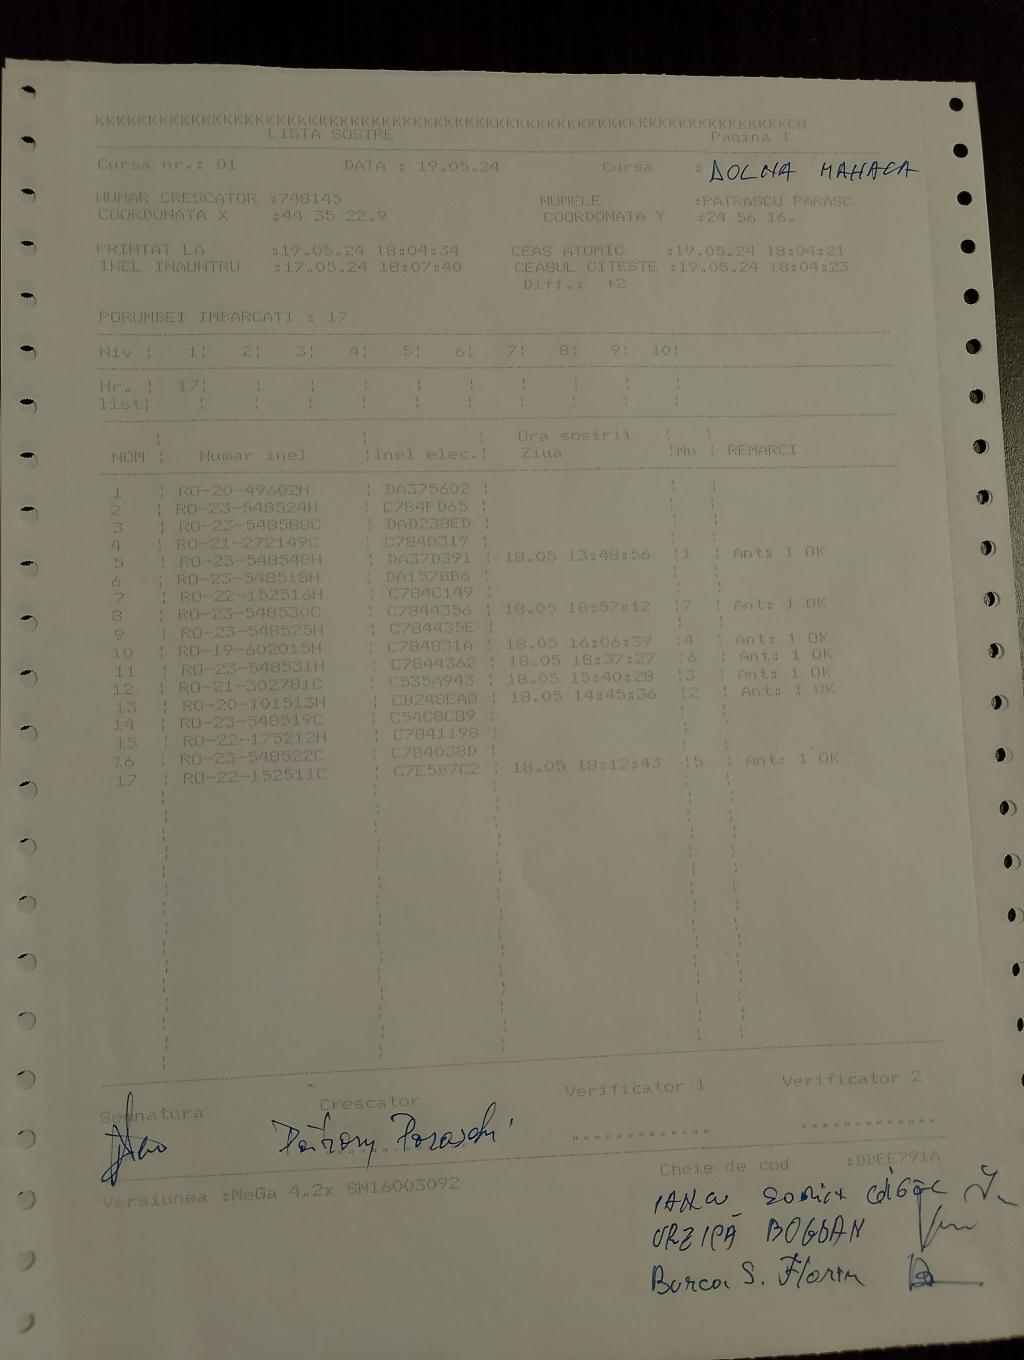 KKKKKKKKKKKKKKKKKKKKKKKKKKKKKKKKKKKKKKKKKKKKKKKKKKKKKKKKKKKKKKKKKKKKKKKKKKKKKKCB
LISTA SOSIRE Pagina 1
Cursa nr.: 01 DATA : 19.05.24 Cursa : DOLNA MAHALA
NUMAR CRESCATOR :748145 NUMELE :PATRASCU PARASC
COORDONATA X :44 35 22.9 COORDONATA Y :24 56 16.
PRINTAT LA :19.05.24 18:04:34 CEAS ATOMIC :19.05.24 18:04:21
INEL INAUNTRU :17.05.24 18:07:40 CEASUL CITESTE :19.05.24 18:04:23
Diff.: +2
PORUMBEI IMBARCATI : 17
Niv ¦ 1¦ 2¦ 3¦ 4¦ 5¦ 6¦ 7¦ 8¦ 9¦ 10¦
Nr. ¦ 17¦ ¦ ¦ ¦ ¦ ¦ ¦ ¦ ¦ ¦
list¦ ¦ ¦ ¦ ¦ ¦ ¦ ¦ ¦ ¦ ¦
Ora sosirii
NOM ¦ Numar inel ¦Inel elec.¦ Ziua ¦Nu ¦ REMARCI
1 ¦ RO-20-49602H ¦ DA375602 ¦
2 ¦ RO-23-548524H ¦ C784FD65 ¦
3 ¦ RO-23-548588C ¦ DAD238ED ¦
4 ¦ RO-21-272149C ¦ C7848319 ¦
5 ¦ RO-23-548548H ¦ DA37D391 ¦ 18.05 13:48:56 ¦1 ¦ Ant: 1 OK
6 ¦ RO-23-548518H ¦ DA157BB6 ¦
7 ¦ RO-22-152516H ¦ C784C149 ¦
8 ¦ RO-23-548530C ¦ C7844356 ¦ 18.05 18:57:12 ¦7 ¦ Ant: 1 OK
9 ¦ RO-23-548525H ¦ C784435E ¦
10 ¦ RO-19-602015H ¦ C784831A ¦ 18.05 16:06:39 ¦4 ¦ Ant: 1 OK
11 ¦ RO-23-548531H ¦ C7844362 ¦ 18.05 18:37:27 ¦6 ¦ Ant: 1 OK
12 ¦ RO-21-302781C ¦ C535A943 ¦ 18.05 15:40:28 ¦3 ¦ Ant: 1 OK
13 ¦ RO-20-101513H ¦ CB248EA8 ¦ 18.05 14:45:36 ¦2 ¦ Ant: 1 OK
14 ¦ RO-23-548519C ¦ C54C8C89 ¦
15 ¦ RO-22-175212H ¦ C7841198 ¦
16 ¦ RO-23-548522C ¦ C784038D ¦
17 ¦ RO-22-152511C ¦ C7E5B7C2 ¦ 18.05 18:12:43 ¦5 ¦ Ant: 1 OK
Segnatura Crescator Verificator 1 Verificator 2
Cheie de cod :DBEE791A
Versiunea :MeGa 4.2x SN16003092
IANCU
URZICĂ BOGDAN
Burca S. Florin